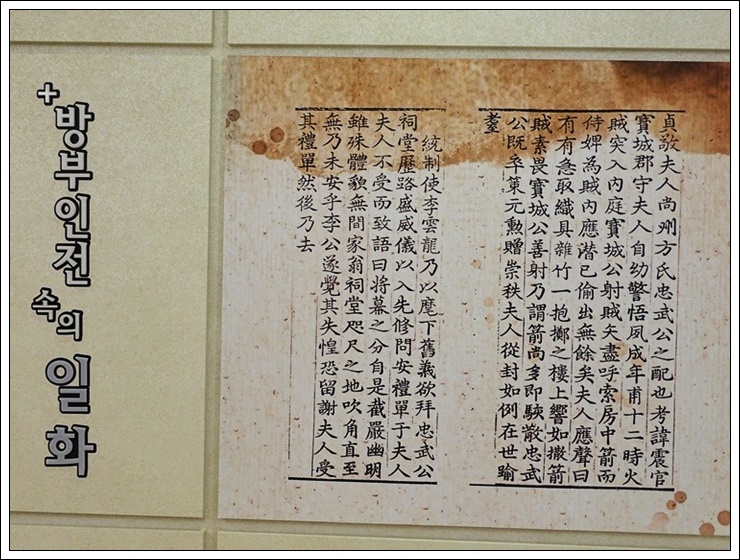 +방부인전 속의 일화
貞敬夫人尙州方氏忠武公之配也考諱震官
寶城郡守夫人自幼警悟夙成年甫十二時火
賊突入內庭寶城公射賊矢盡呼索房中箭而
侍婢爲賊內應潛已偸出無餘矣夫人應聲曰
有有急取織具雜竹一抱擲之樓上響如撒箭
賊素畏寶城公善射乃謂箭尙多卽駭散忠武
公旣卒策元勳贈崇秩夫人從封如例在世踰
耋
統制使李雲龍乃以麾下舊義欲拜忠武公
祠堂歷路盛威儀以入先修問安禮單于夫人
夫人不受而致語曰將幕之分自是截嚴幽明
雖殊體貌無間家翁祠堂咫尺之地吹角直至
無乃未安乎李公遂覺其失惶恐留謝夫人受
其禮單然後乃去